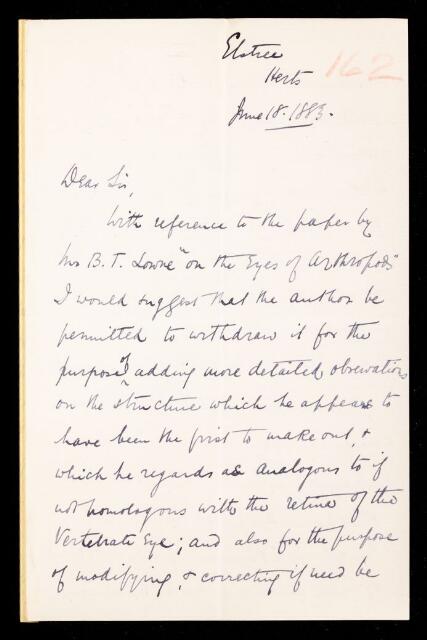 Elstree
Herts
162
June 18. 1883.
Dear Sir,
With reference to the paper by
Mr B. T. Lowne "on the Eyes of Arthropods"
I would suggest that the author be
permitted to withdraw it for the
purpose of adding more detailed observations
on the structure which he appears to
have been the first to make out, &
which he regards as analogous to if
not homologous with the retina of the
Vertebrate Eye; and also for the purpose
of modifying, & correcting if need be